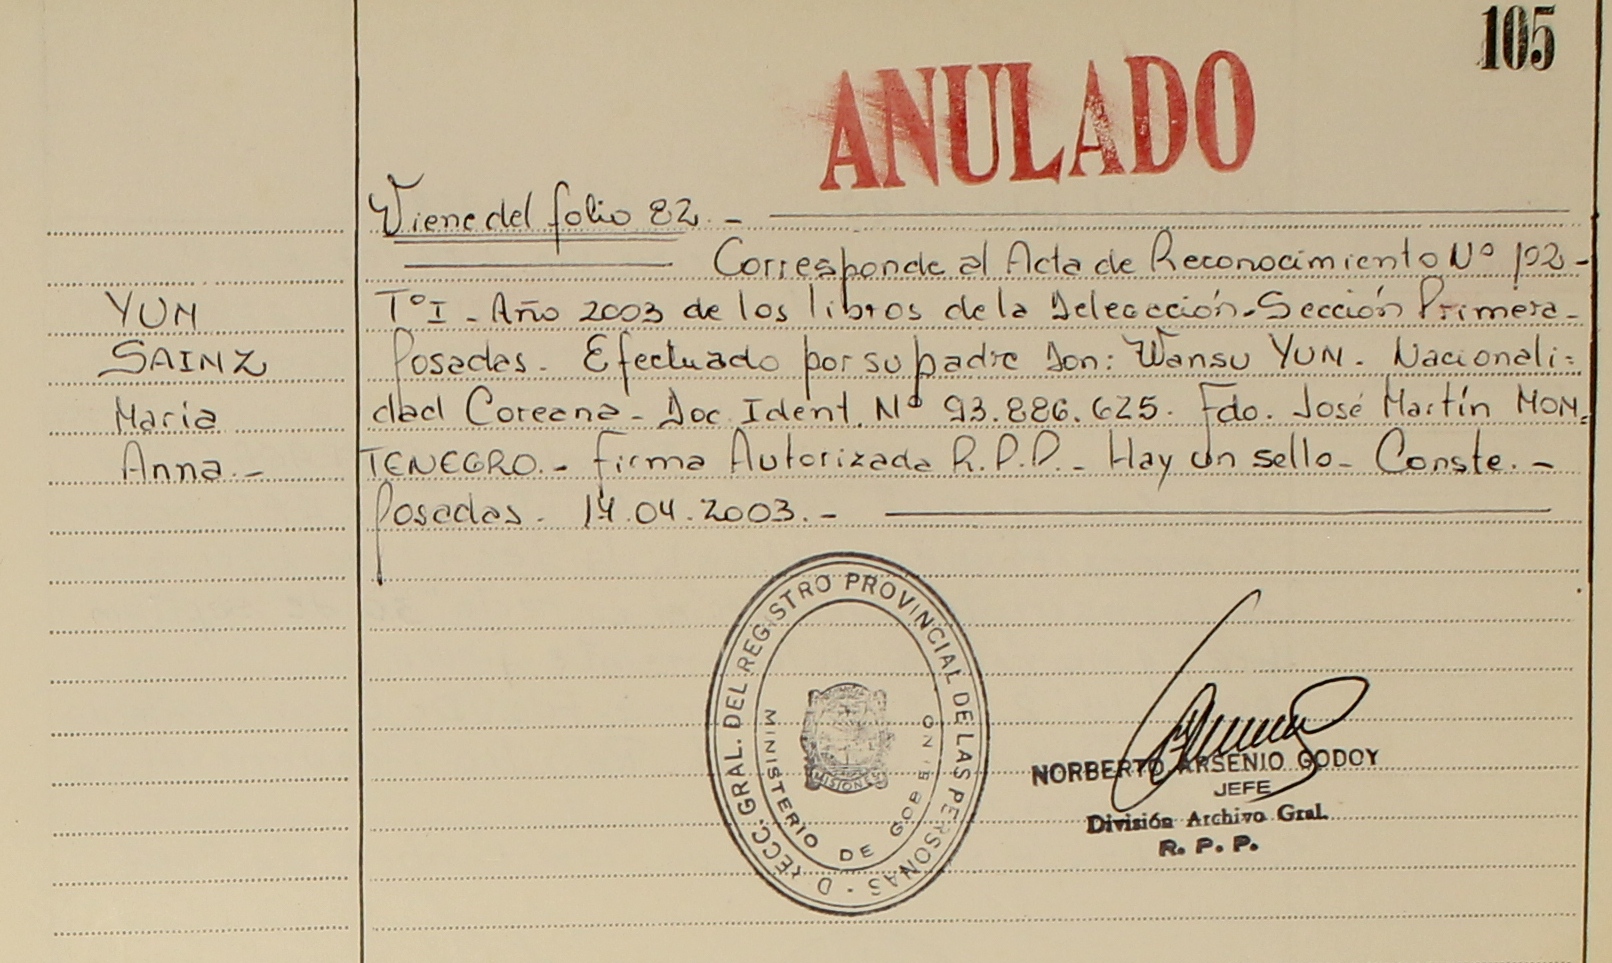 105
ANULADO
Viene del folio 82. -
Corresponde al Acta de Reconocimiento Nº 102-
YUN
SAINZ
Maria
Anna. -
TºI - Año 2003 de los libros de la Delegación - Sección Primera -
Posadas. Efectuado por su padre Don: Wansu YUN. Nacionali-
dad Coreana - Doc. Ident. Nº 93.886.625. Fdo. José Martín MON-
TENEGRO. - Firma Autorizada R.P.P. - Hay un sello - Conste. -
Posadas. 14.04.2003. -
DIRECC. GRAL. DEL REGISTRO PROVINCIAL DE LAS PERSONAS -
MINISTERIO DE GOBIERNO
MISIONES
NORBERTO ARSENIO GODOY
JEFE
División Archivo Gral.
R. P. P.